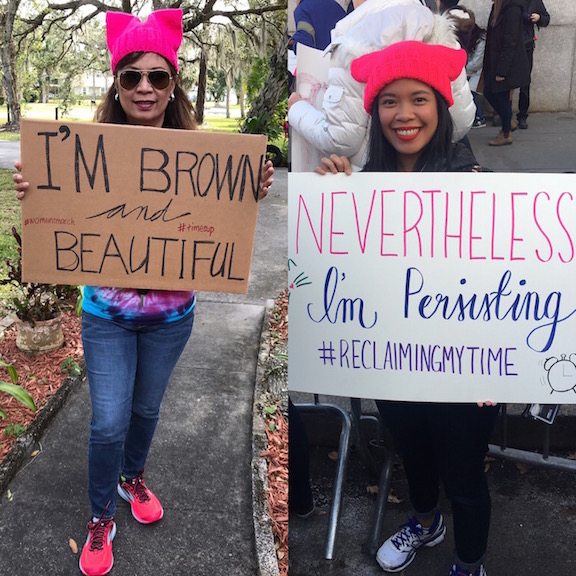 I'M BROWN
and
#womensmarch
#timesup
BEAUTIFUL
NEVERTHELESS
I'm Persisting
#RECLAIMINGMYTIME